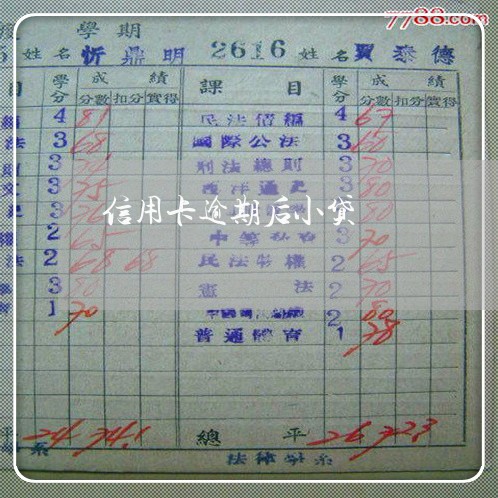 7788.com
學期
5 姓名 忻鼎明 2616 姓名 賈泰德
目 學分 成績 課目 學分 成績
分數 扣分 實得 分數 扣分 實得
4 81 民法債編 4 67
法 3 68 國際公法 3 60
3 刑法總則 3 70
3 75 西洋通史 3 80
3 3 80
2 65 3 70
法 2 68 68 民法物權 2 65
3 80 憲法 2 70
育 1 70 2 80
普通體育 1 78
信用卡逾期后小贷
平 24 74.1 總平 26 72.3
系 法律學系